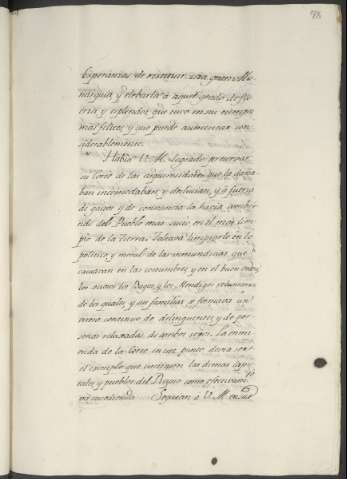 Esperanzas de restituir esta gran Mo-
narquia, y elebarla à aquel grado de glo-
ria y esplendor que tuvo en sus tiempos
mas felices y que puede aumentar con-
siderablemente.
Havia V. M. logrado preservar
su Corte de las que la
ban incomodaban y deslucian, y à fuerza
de gastos y de constancia la hacia
del Pueblo mas sucio en el mas lim-
pio de la tierra. Faltava limpiarle en lo
politico, y moral de las inmundicias que
causavan en las costumbres y en el buen orden
los ociosos los Bagos, y los Mendigos voluntarios
de los quales, y sus familias se formava un
continuo de delinquentes y de per-
sonas relaxadas, de ambos sexos. La enmi-
enda de la Corte en este punto devia ser
el exemplo que las demas Capi-
tales y pueblos del Reyno como efectivam.te
ha sucedido. Seguian à V. M. en sus